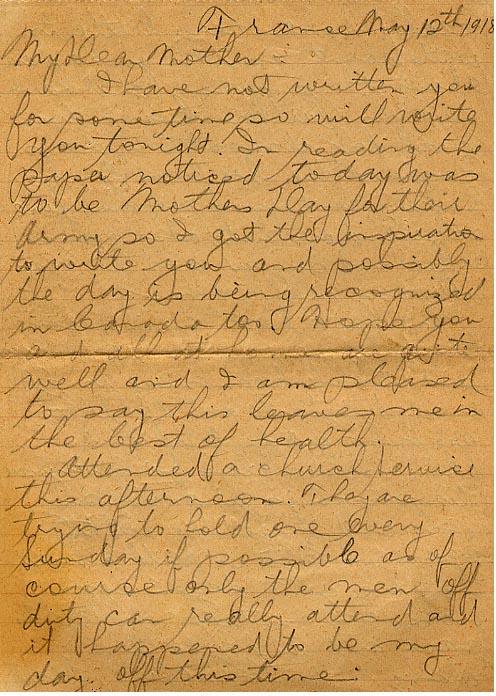 France May 12th 1918
My Dear Mother -
I have not written you
for sometime so will write
you tonight. In reading the
paper noticed today was
to be Mothers Day for their
Army so I got the inspiration
to write you and possibly
the day is being recognized
in Canada too. Hope you
and all at home are quite
well and I am pleased
to say this leaves me in
the best of health.
Attended a church service
this afternoon. They are
trying to hold one every
Sunday if possible as of
course only the men off
duty can really attend and
it happened to be my
day off this time.